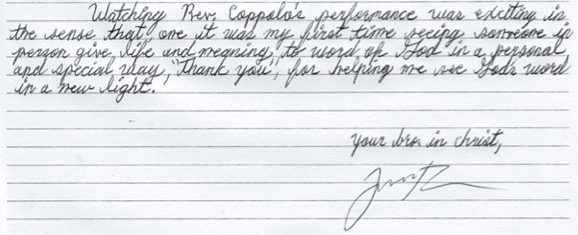 Watching Rev. Coppola's performance was exciting in
the sense that one it was my first time seeing someone in
person give life and meaning to word of God in a personal
and special way, "thank you", for helping me see God's word
in a new light.
your bro. in christ,